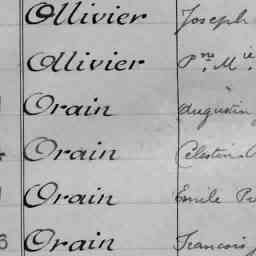 Ollivier Joseph
Ollivier Pre. Mie.
Orain Augustin
Orain Célestin
Orain Emile
Orain Francois
6